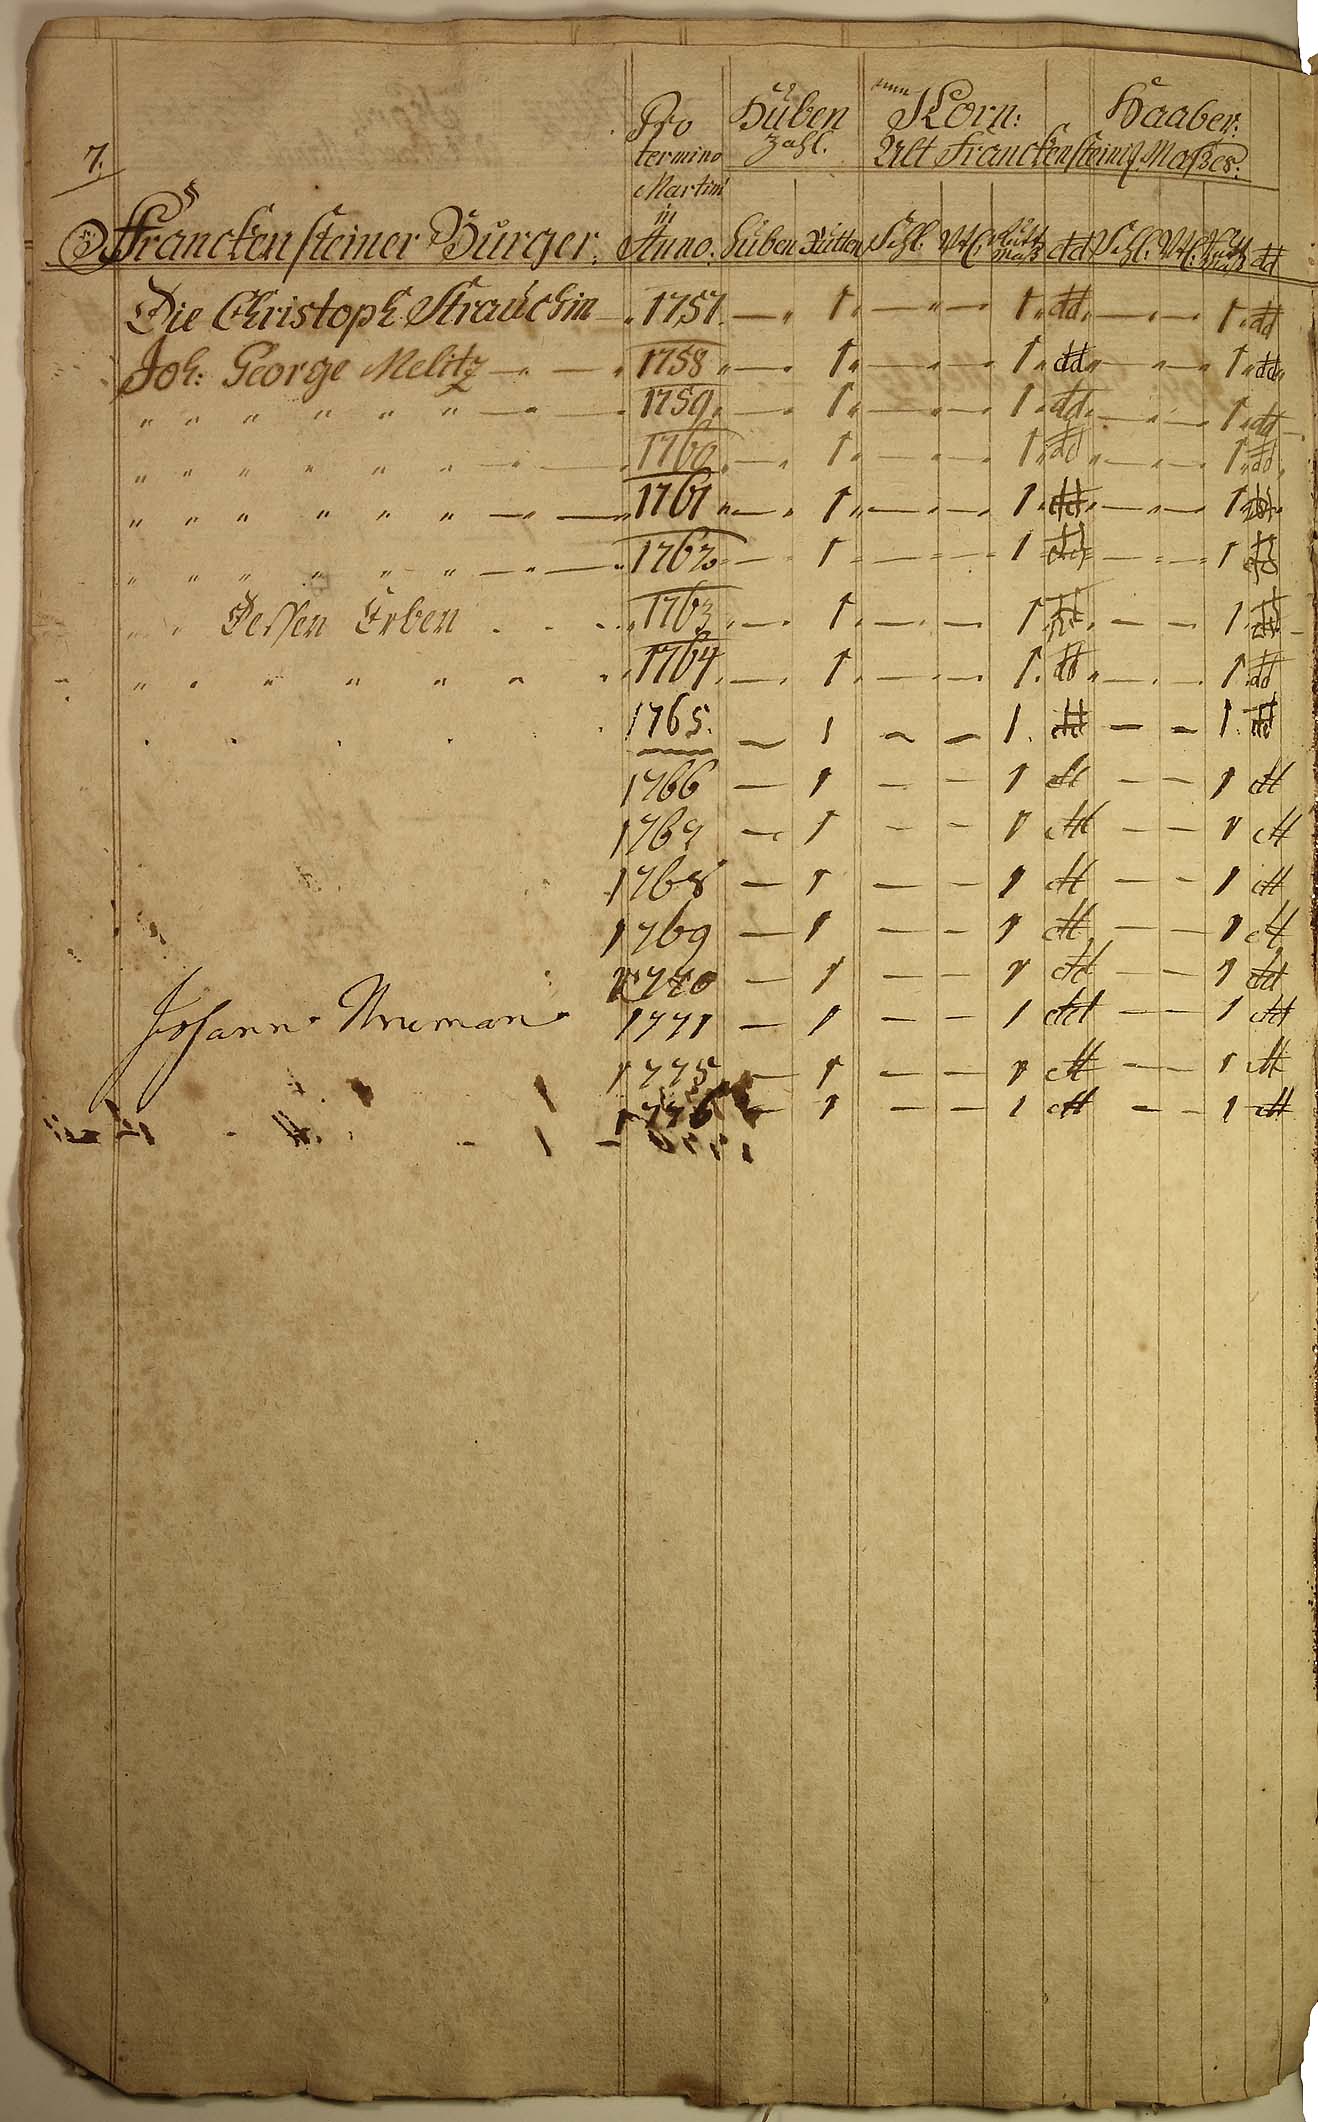 7.
Pro termino Martini in Anno.
Huben Zahl.
Korn: Haaber:
Alt Franckensteinig. Maßes:
Franckensteiner Bürger. Huben Rutten Schl. Vtl. dd Schl. Vtl. dd
Die Christoph Strauchin — „ 1757. — „ 1 „ — „ — 1 „ dd „ — „ — „ 1 „ dd
Joh: George Melitz — „ — „ 1758 „ — „ 1 „ — „ — „ 1 „ dd „ — „ — „ 1 „ dd „
„ „ „ „ „ „ — „ — 1759 „ — „ 1 „ — „ — „ 1 „ dd „ — „ — „ 1 „ dd —
„ „ „ „ „ „ — „ — „ 1760 „ — „ 1 „ — „ — „ 1 „ dd „ — „ — „ 1 „ dd „
„ „ „ „ „ „ — „ — „ 1761 „ — „ 1 „ — „ — „ 1 „ dd „ — „ — „ 1 „ dd „
„ „ „ „ „ „ — „ — „ 1762 „ — „ 1 — „ — 1 dd — „ — 1 dd
„ „ Dessen Erben . . . „ 1763 „ — „ 1 „ — „ — „ 1 „ dd „ — — 1 „ dd —
„ „ „ „ „ „ „ 1764 „ — „ 1 „ — „ — „ 1 . dd „ — „ — „ 1 „ dd
. . . . . 1765. — 1 — — 1. dd — — 1. dd
1766 — 1 — — 1 dd — — 1 dd
1767 — 1 — — 1 dd — — 1 dd
1768 — 1 — — 1 dd — — 1 dd
1769 — 1 — — 1 dd — — 1 dd
1770 — 1 — — 1 dd — — 1 dd
Johann 1771 — 1 — — 1 dd — — 1 dd
1775 — 1 — — 1 dd — — 1 dd
1776 — 1 — — 1 dd — — 1 dd